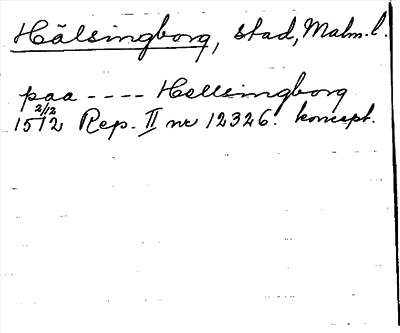 Hälsingborg, stad, Malm. l.
paa - - - - Hellsingborg
1512 2/12 Rep. II nr 12326. koncept.